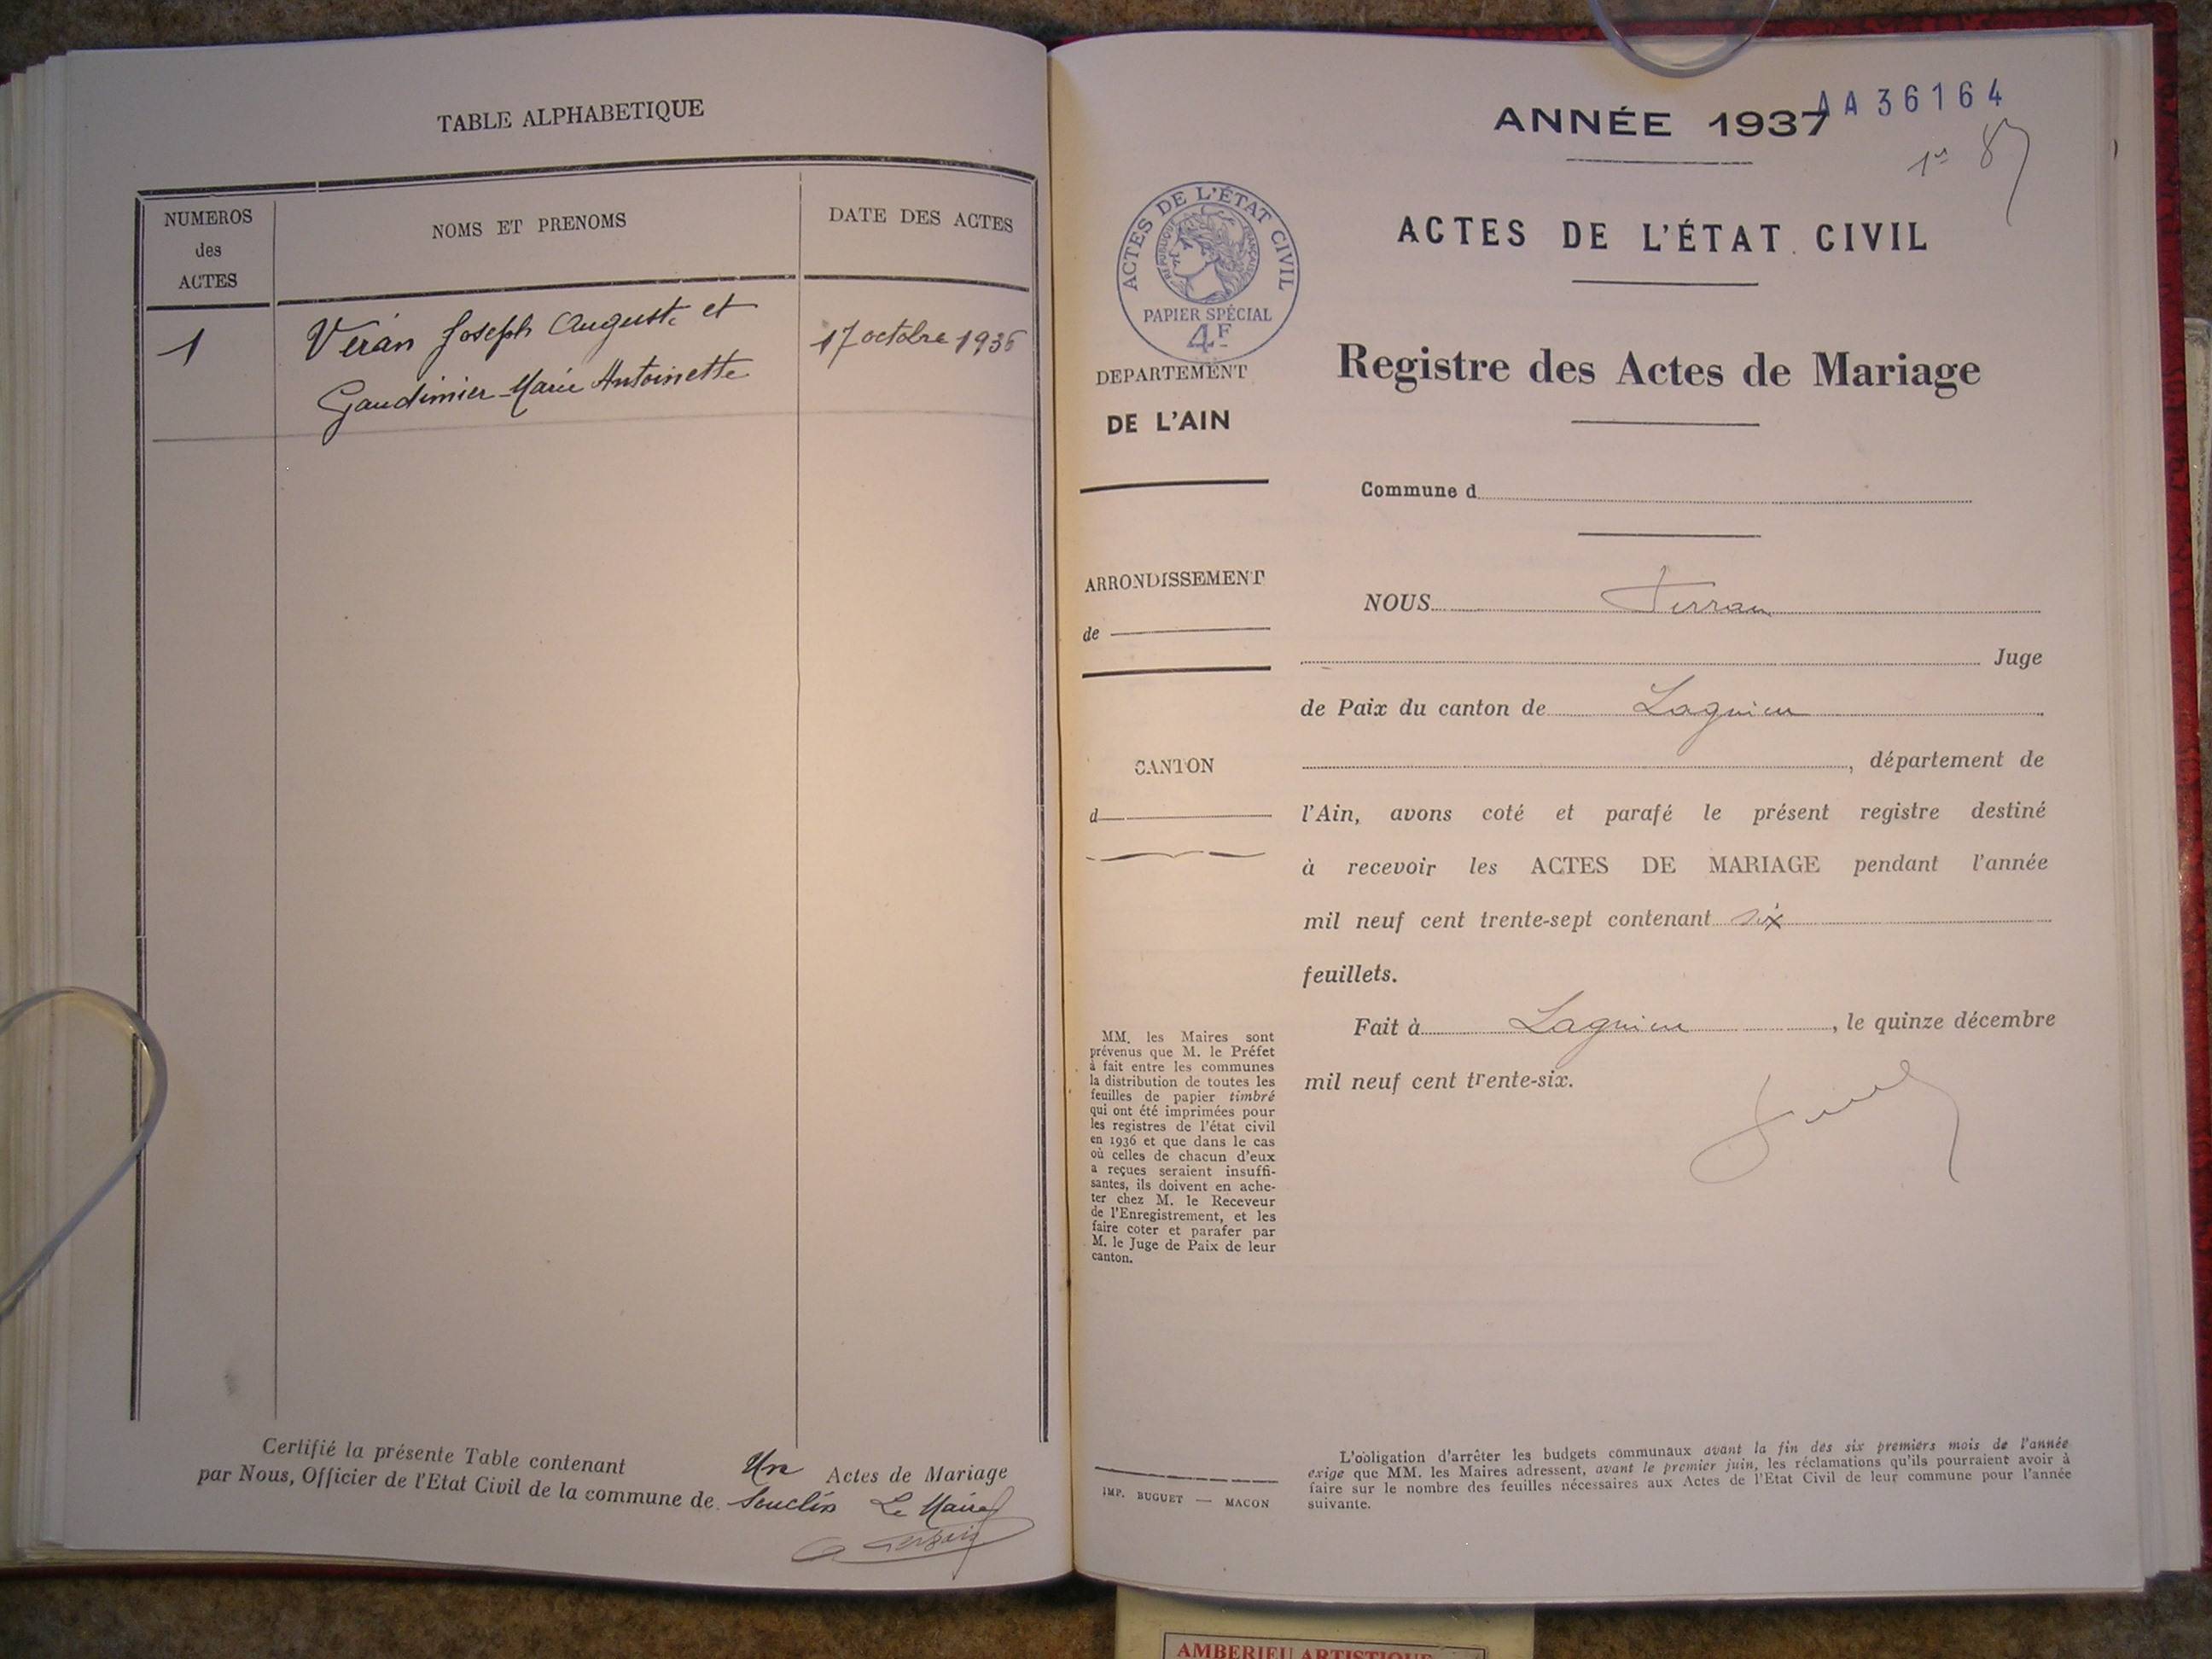 TABLE ALPHABETIQUE
NUMEROS
des
ACTES
NOMS ET PRENOMS
DATE DES ACTES
1
Veran Joseph Auguste et
Gaudimier Marie Antoinette
17 octobre 1936
Certifié la présente Table contenant Un Actes de Mariage
par Nous, Officier de l'Etat Civil de la commune de Souclin Le Maire
AA36164
ANNÉE 1937
1er
ACTES DE L'ÉTAT CIVIL
ACTES DE L'ÉTAT CIVIL
RÉPUBLIQUE FRANÇAISE
PAPIER SPÉCIAL
4F
DEPARTEMENT
DE L'AIN
Registre des Actes de Mariage
Commune d
ARRONDISSEMENT
de
CANTON
d
NOUS
Juge
de Paix du canton de Lagnieu
, département de
l'Ain, avons coté et parafé le présent registre destiné
à recevoir les ACTES DE MARIAGE pendant l'année
mil neuf cent trente-sept contenant six
feuillets.
Fait à Lagnieu, le quinze décembre
mil neuf cent trente-six.
MM. les Maires sont
prévenus que M. le Préfet
à fait entre les communes
la distribution de toutes les
feuilles de papier timbré
qui ont été imprimées pour
les registres de l'état civil
en 1936 et que dans le cas
où celles de chacun d'eux
a reçues seraient insuffi-
santes, ils doivent en ache-
ter chez M. le Receveur
de l'Enregistrement, et les
faire coter et parafer par
M. le Juge de Paix de leur
canton.
IMP. BUGUET — MACON
L'obligation d'arrêter les budgets communaux avant la fin des six premiers mois de l'année
exige que MM. les Maires adressent, avant le premier juin, les réclamations qu'ils pourraient avoir à
faire sur le nombre des feuilles nécessaires aux Actes de l'Etat Civil de leur commune pour l'année
suivante.
AMBERIEU ARTISTIQUE